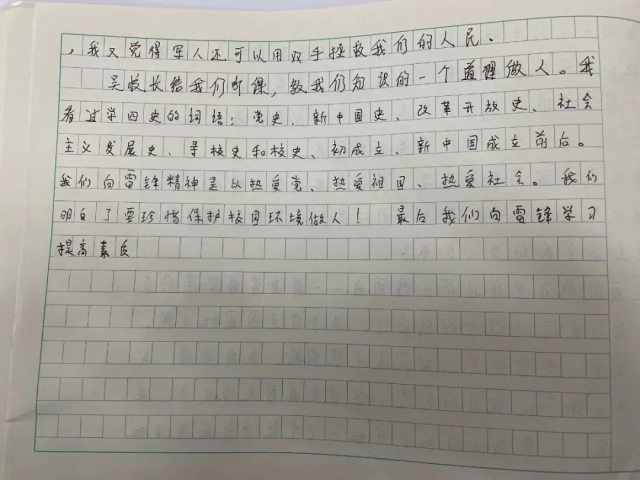 ，我又觉得军人还可以用双手拯救我们的人民、
吴校长给我们听课，教我们知识的一个道理做人。我
看过学四史的词语：党史、新中国史、改革开放史、社会
主义发展史、寻校史和校史、初成立、新中国成立前后。
我们向雷锋精神是以热爱党、热爱祖国、热爱社会。我们
明白了要珍惜保护校园环境做人！最后我们向雷锋学习
提高素质